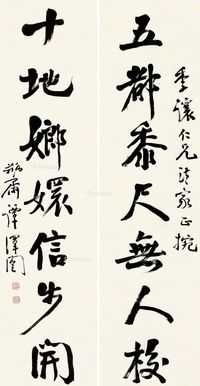 五都黍尺無人校
季讓仁兄法家正捥
十地嫏嬛信步開
瓶齋譚澤闓